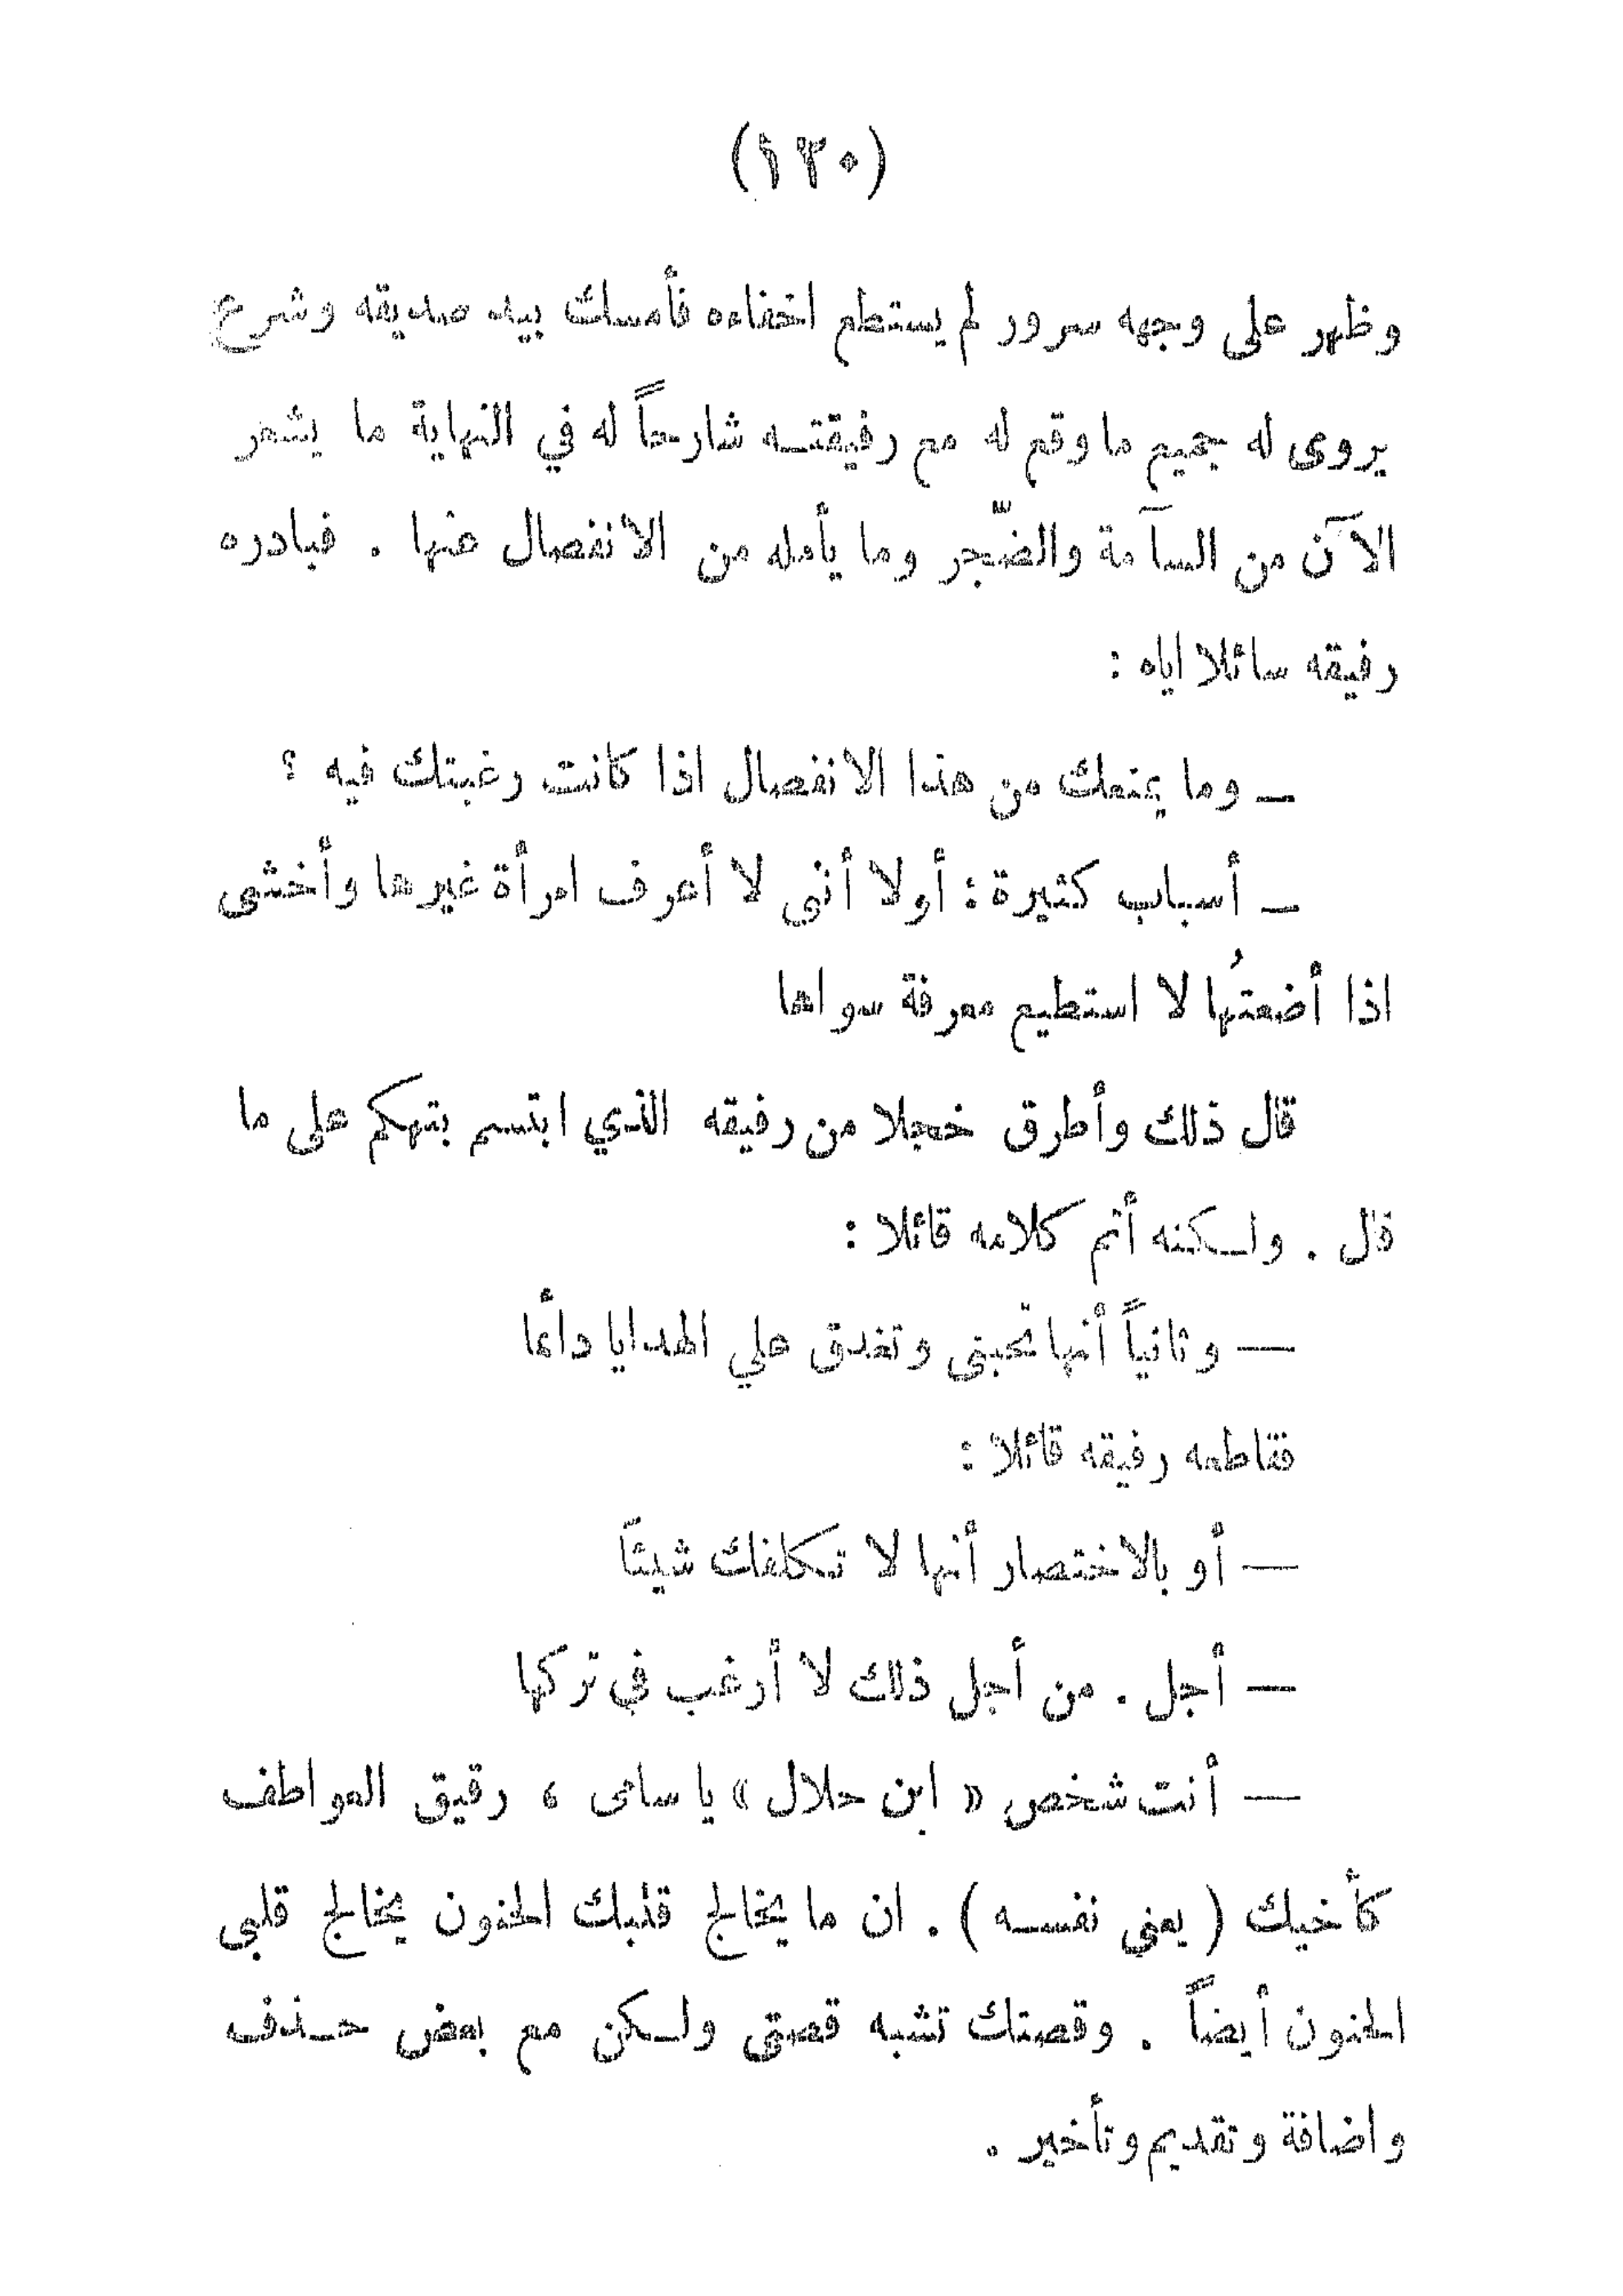 (١٣٠)
وظهر على وجهه سرور لم يستطع اخفاءه فأمسك بيد صديقه وشرع
يروى له جميع ما وقع له مع رفيقته شارحاً له في النهاية ما يشعر
الآن من السآمة والضّجر وما يأمله من الانفصال عنها . فبادره
رفيقه سائلا اياه :
ـ وما يمنعك من هذا الانفصال اذا كانت رغبتك فيه ؟
ـ أسباب كثيرة : أولا أنى لا أعرف امرأة غيرها وأخشى
اذا أضعتُها لا استطيع معرفة سواها
قال ذلك وأطرق خجلا من رفيقه الذي ابتسم بتهكم على ما
قال . ولكنه أتم كلامه قائلا :
— وثانياً أنها تحبنى وتغدق علي الهدايا دائما
فقاطعه رفيقه قائلا :
— أو بالاختصار أنها لا تكلفك شيئاً
— أجل . من أجل ذلك لا أرغب في تركها
— أنت شخص « ابن حلال » يا سامى ، رقيق العواطف
كأخيك ( يعني نفسه ) . ان ما يخالج قلبك الحنون يخالج قلبي
الحنون أيضاً . وقصتك تشبه قصتى ولكن مع بعض حذف
واضافة وتقديم وتأخير .